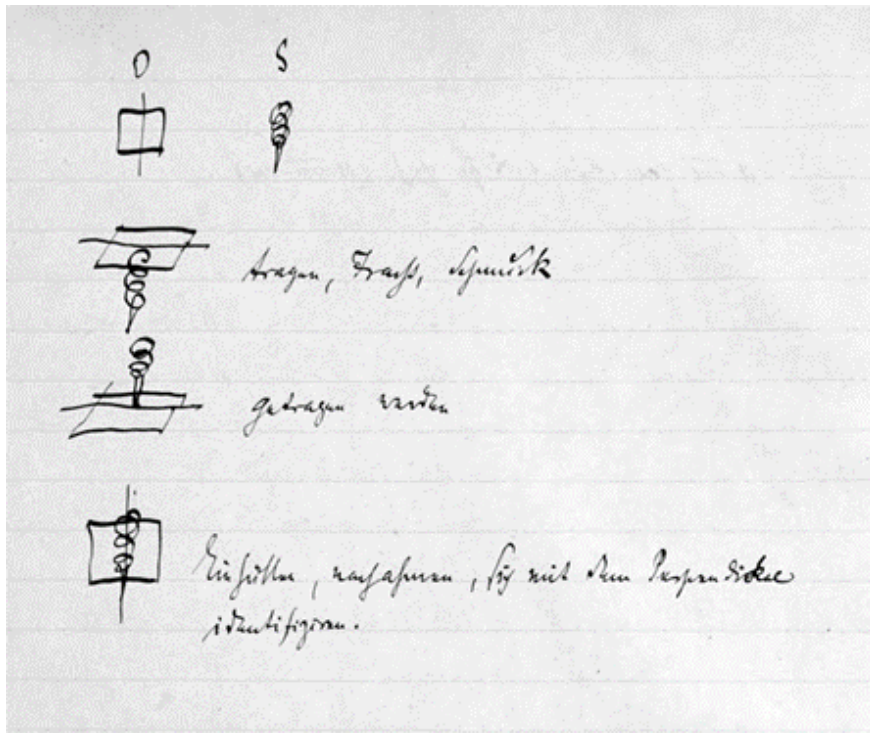 O S
tragen, Tracht, Schmuck
getragen werden
Einhüllen, nachahmen, sich mit dem Perpendikel
identifizieren.